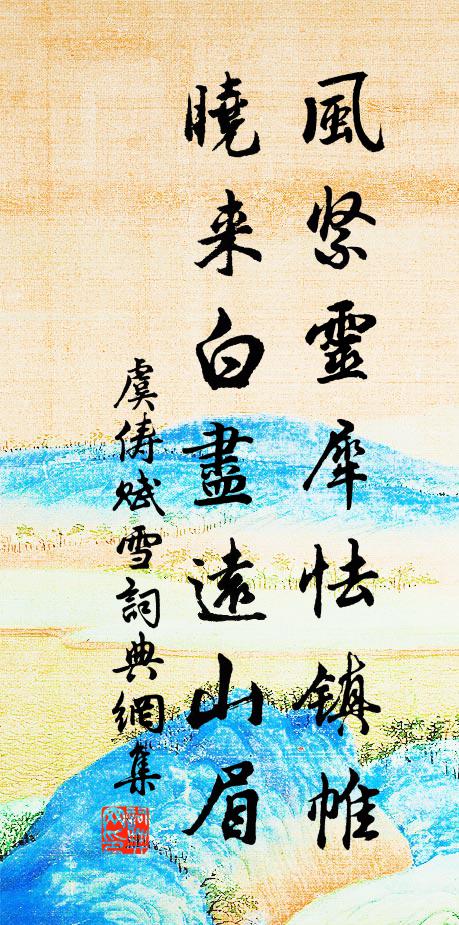 風緊靈犀怯鎮帷
曉来白盡遠山眉
虞儔賦雪詞典網集